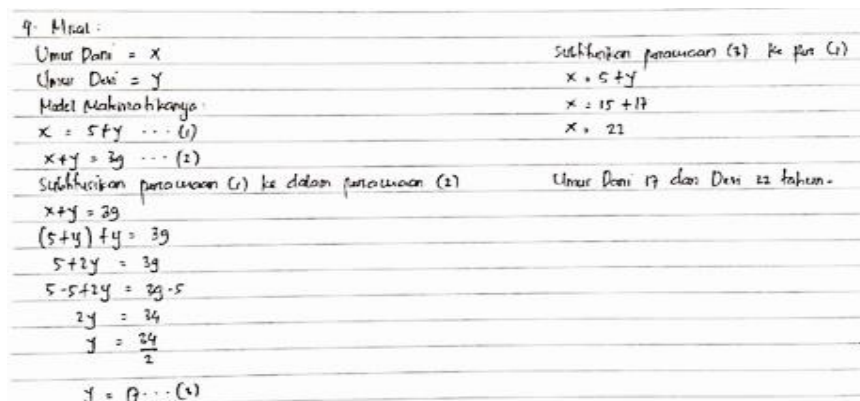 4. Misal :
Umur Dani = x
Umur Desi = y
Model Matematikanya :
x = 5+y ... (1)
x+y = 39 ... (2)
Subtitusikan persamaan (1) ke dalam persamaan (2)
x+y = 39
(5+y) + y = 39
5+2y = 39
5-5+2y = 39-5
2y = 34
y = 34/2
y = 17 ... (3)
Subtitusikan persamaan (3) ke pers (1)
x = 5+y
x = 15 + 17
x = 22
Umur Dani 17 dan Desi 22 tahun.